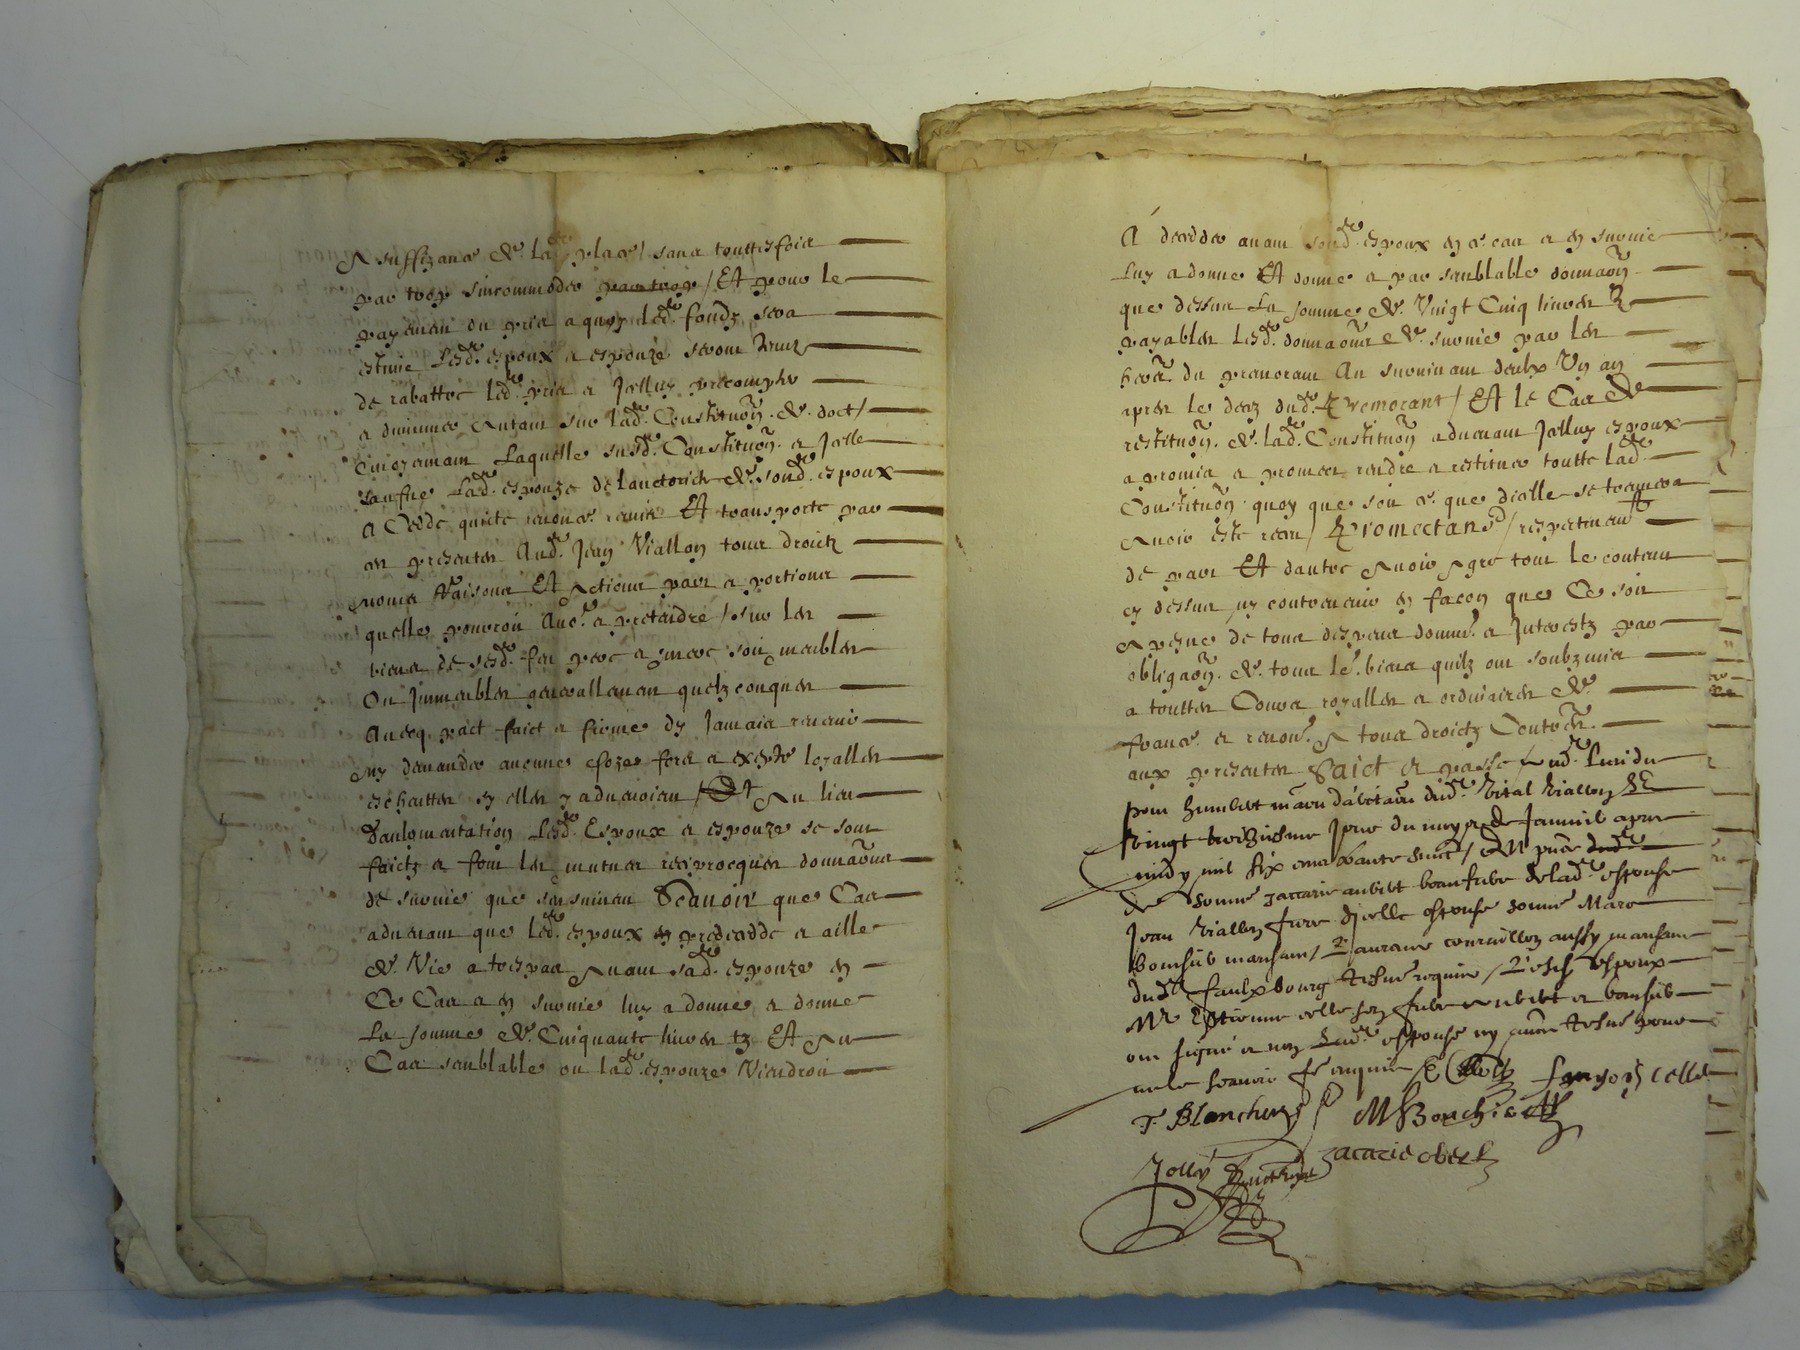 A suffizance de lad place / sans touttesfois
par trop sincommoder par trop / Et pour le
payement du pris a quoy led fondz sera
estimé lesd espoux et espouze seront tenuz
de rabattre led pris et Icelluy precompter
et diminuer Autant sur lad Constituon de doct /
Moyenant Laquelle susd Constituon et Icelle
sauſue Lad espouze de lauctorité de sond espoux
A Cedé quitté renoncé remis Et transporté par
ces presentes Aud Jean Viallon tous droictz
noms Raisons Et Actions part et portions
quelle pourroit Avoir et pretendre / sur les
biens de sesd feu pere et mere soit meubles
Ou Jmmeubles generallement quelzconques
Avecq pact faict et firme dy Jamais revenir
ny demander aucune choze fors et exepté loyalles
escheuttes sy elles y advenoient / Et Au lieu
daulgmentation Lesd Espoux et espouze se sont
faictz et font les mutues reciprocques donnaons
de survie que sensuivent Scavoir que Cas
advenant que led espoux predecedde et aille
de Vie a trespas Avant sad espouze en
Ce Cas et en survie luy a donné et donne
La somme de Cinquante livres tz Et Au
Cas semblable ou lad espouze Viendroit
A deceder avant sond espoux en ce cas et en survie
Luy a donné Et donne a par semblable donnaon
que dessus La somme de Vingt Cinq livres tz
payables lesd donnaons de survie par les
heors du premorant Au survivant deulx Un an
apres le decez dud Premorant / Et le Cas de
restituon de lad Constituon advenant Icelluy espoux
a promis et promect rendre et restituer toutte lad
Constituon quoy que soit ce que dicelle se treuvera
Avoir esté receu / Promectans / respectivemt
de part Et dautre Avoir Agré tout le contenu
cy dessus ny contrevenir en facon que Ce soit
A peyne de tous despens domm et Interestz par
obligaon de tous les biens quilz ont soubzmis
a touttes Cours royalles et ordinaires de
france et renon A tous droictz Contres
aux presentes Faict et passé aud lieu du
pont humbert maon dhabitaon dud Vital Viallon le
Vingt troiziesme Jour du moys de Janvier apres
midy mil six cens soixante sept / En pnce dud
de honne zaccarie aubert beaufrere de lad espouse
Jean Viallon frere dicelle espouse honne Marc
bonchiet marchant / Laurans courvillon aussy marchant
dud faulxbourg tesmo requis / Lesd espoux
Me Estienne celle son frere aubert et bonchiet
ont signé et non lad espouse ny autres tesmo pour
ne le scavoir de ce enquis / E Celle françoys celle
F. Blancheton MBonchiet
zacarie obert
Jolly